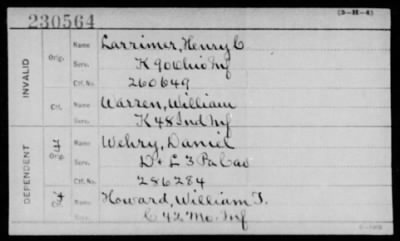 230564
(3-H-4)
INVALID
Orig.
Name Larrimer, Henry C
Serv. K 90 Ohio Inf
Ctf. No. 260649
Ctf.
Name Warren, William
Serv. K 48 Ind Inf
DEPENDENT
Orig.
Name Wehry, Daniel
Serv. D + L 3 Pa Cav
Ctf. No. 286284
Name Howard, William T.
Serv. C 42 Mo. Inf